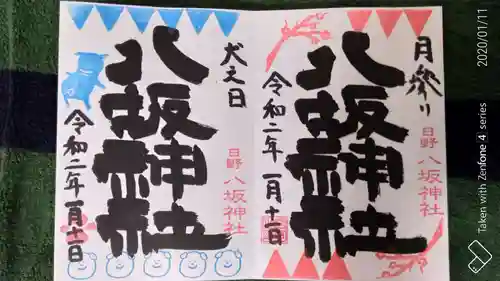 月祭り
日野 八坂神社
八坂神社
令和二年 一月十一日
犬之日
日野 八坂神社
八坂神社
令和二年 一月十一日
2020/01/11
Taken with Zenfone 4 series